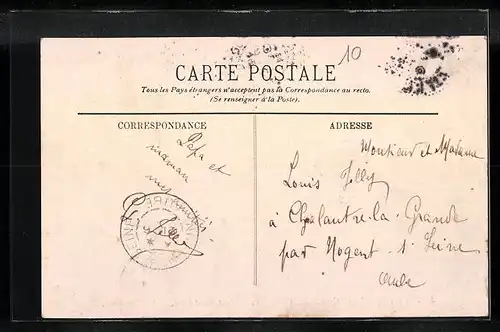 10
CARTE POSTALE
Tous les Pays étrangers n'acceptent pas la Correspondance au recto.
(Se renseigner à la Poste).
CORRESPONDANCE
ADRESSE
Papa et
maman
Monsieur et Madame
Louis Jolly
à Chalautre-la-Grande
par Nogent s. Seine
Aube